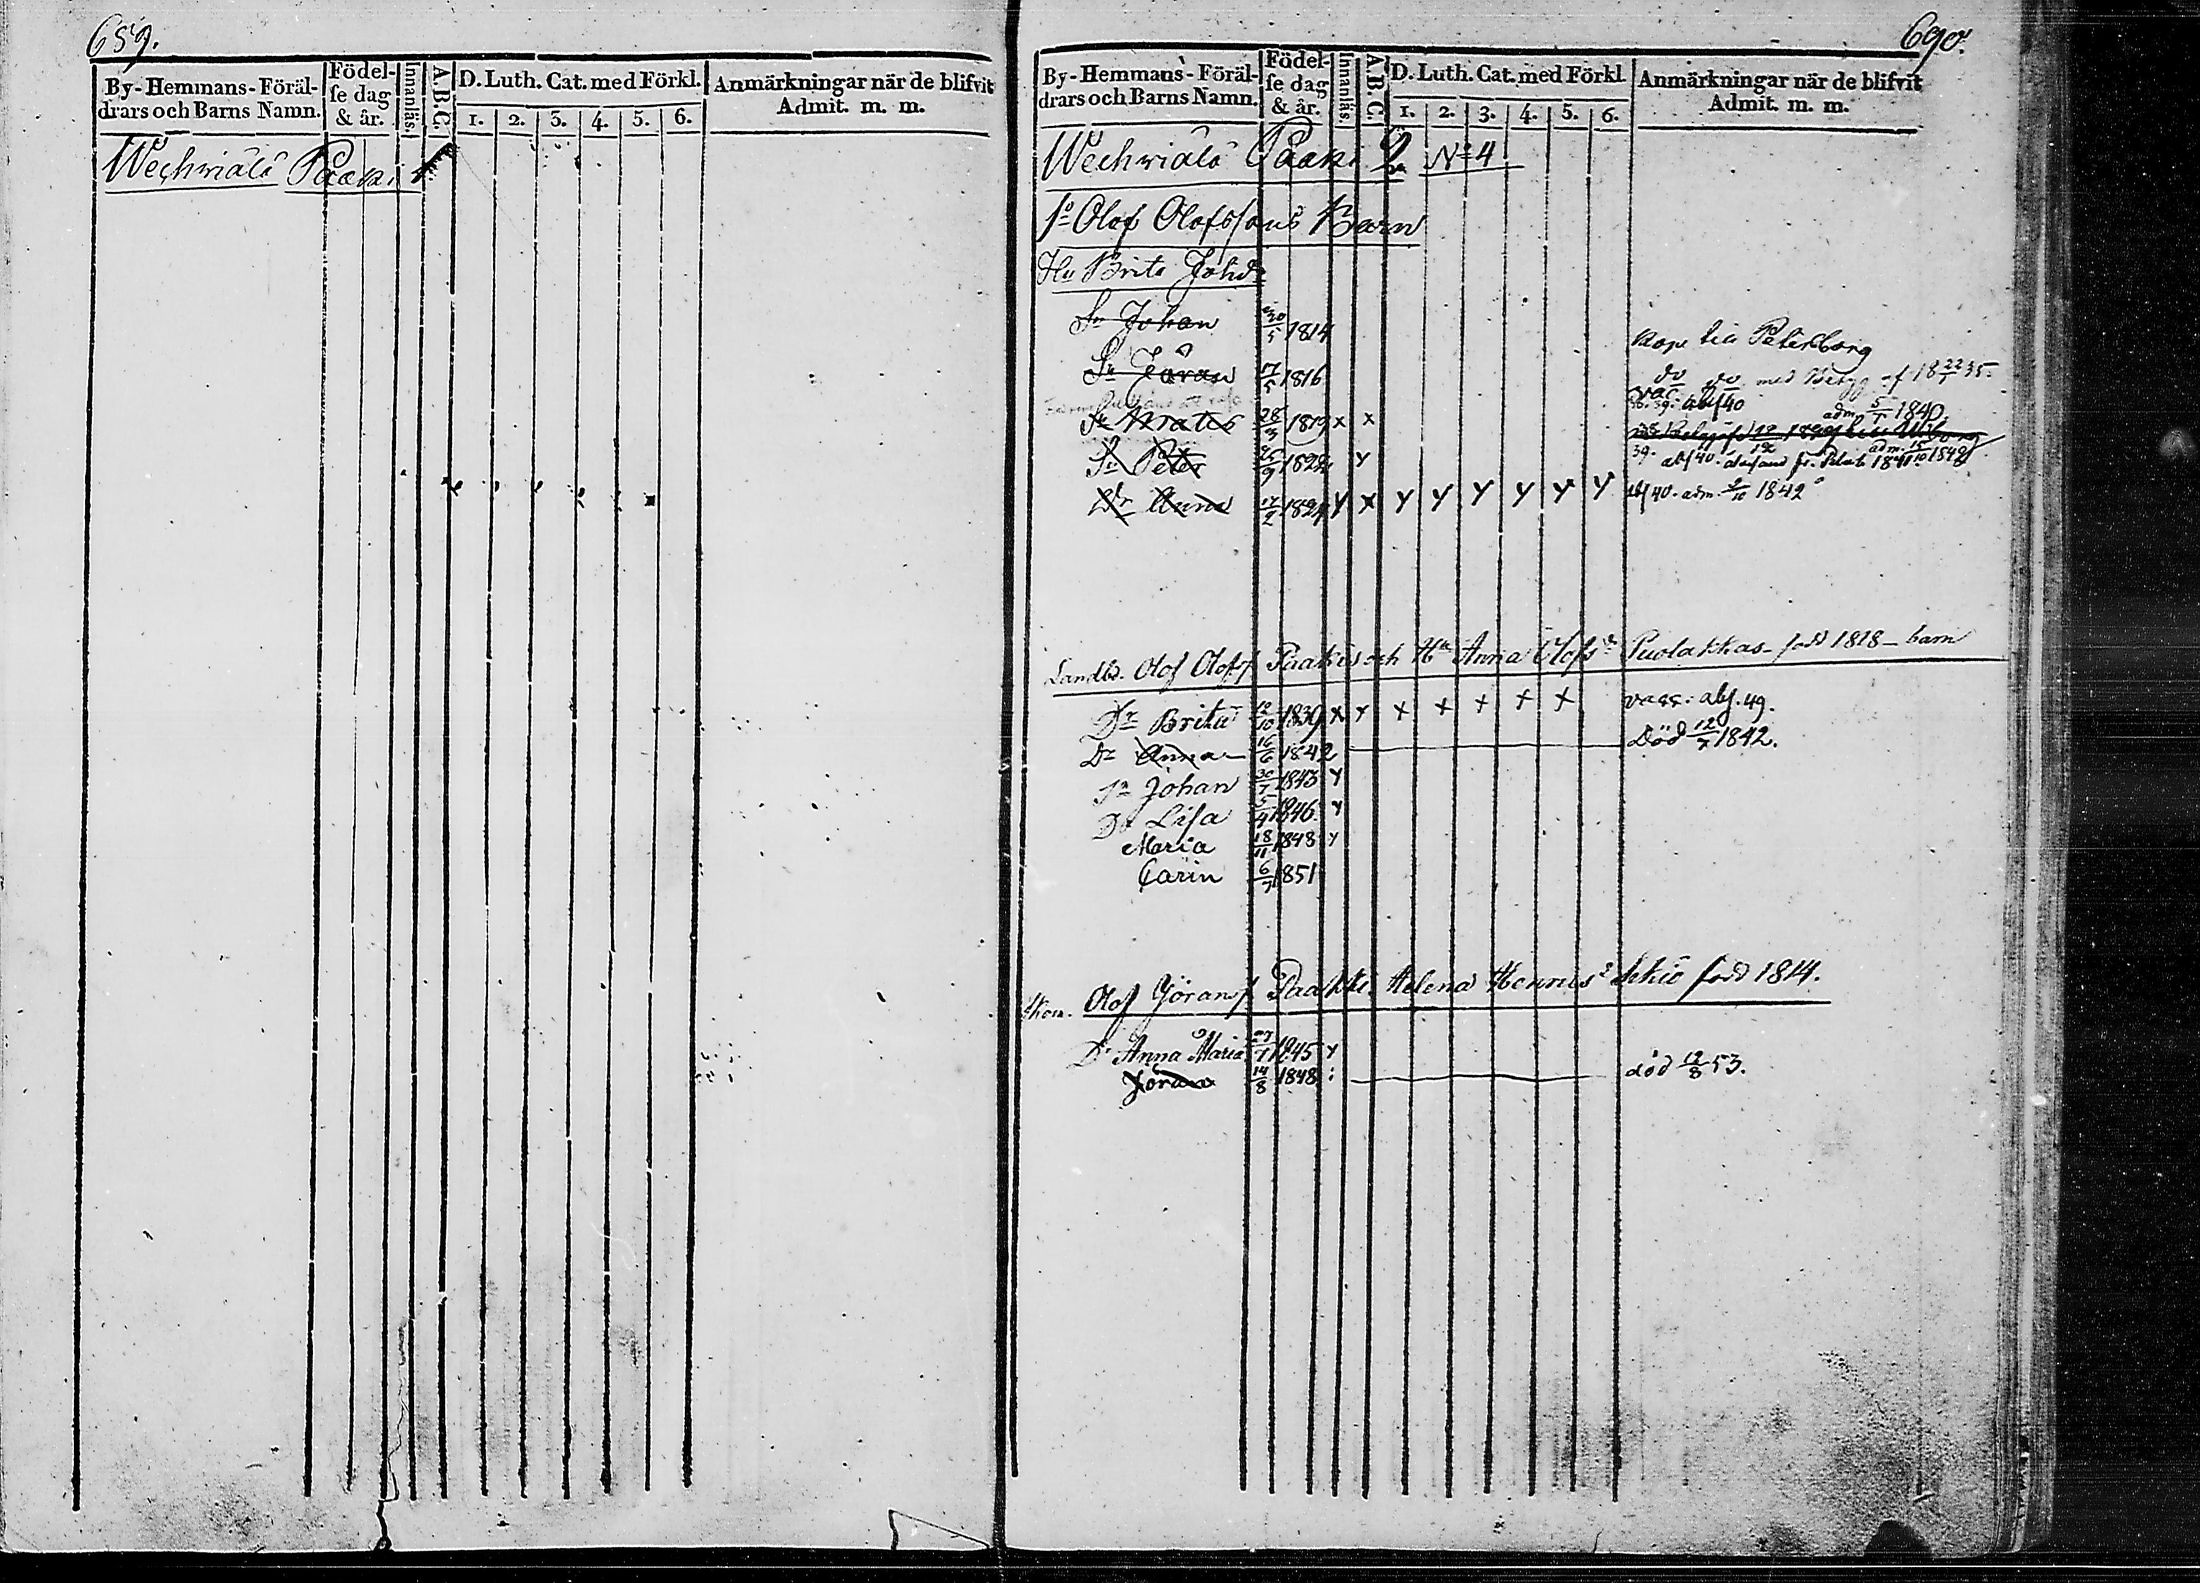 659.
By-Hemmans-Föräl-
drars och Barns Namn.
Födel-
se dag
& år.
Innanläs.
A.B.C.
D. Luth. Cat. med Förkl.
1. 2. 3. 4. 5. 6.
Anmärkningar när de blifvit
Admit. m. m.
Wechwiälä Paaki 1
690.
By-Hemmans-Föräl-
drars och Barns Namn.
Födel-
se dag
& år.
Innanläs
A.B.C.
D. Luth. Cat. med Förkl.
1. 2. 3. 4. 5. 6.
Anmärkningar när de blifvit
Admit. m. m.
Wechwiälä Paaki 2 No 4
Olof Olofssons Barn
Hu Brita Johdr
Sn Johan 30/5 1814 till Petersborg
Sn Göran 17/5 1816 do do med Betyg af 18 22/1 35.
Sn 28/3 1819 x x abs 40 adm 5/1 1840.
Sn Peter 1822 y
39. abs 40. 1841 adm. 15/10 1842
Dr Anna 17/2 1824 y x y y y y y y abs 40. adm. 2/10 1842
Landbd. Olof Olofss Paakis och Hu Anna Olofsdr Puolakkas född 1818 – barn
Dr Brita 12/10 1839 x y x x x x x vacc. abs. 49.
Dr Anna 16/6 1842 Död 12/7 1842.
Sn Johan 30/7 1843 y
Dr Lisa 5/4 1846. y
Maria 18/11 1848 y
Carin 6/7 1851
Olof Göranss Paakki Helena Hennisdr född 1814.
Dr Anna Maria 27/1 1845 y
Jöran 14/8 1848 död 12/8 53.